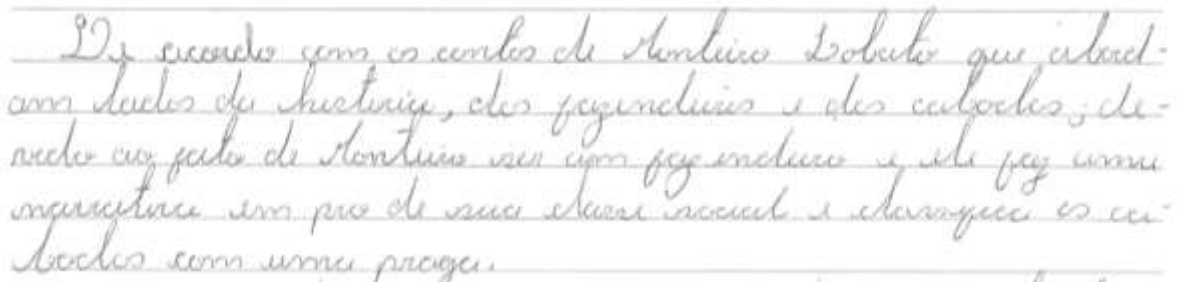 De acordo com os contos de Monteiro Lobato que abord-
am lados da história, dos fazendeiros e dos cabocles; de-
vido ao fato de Monteiro ser um fazendeiro e ele faz uma
narrativa em pro de sua classe social e classifica os ca-
bocles com uma praga.